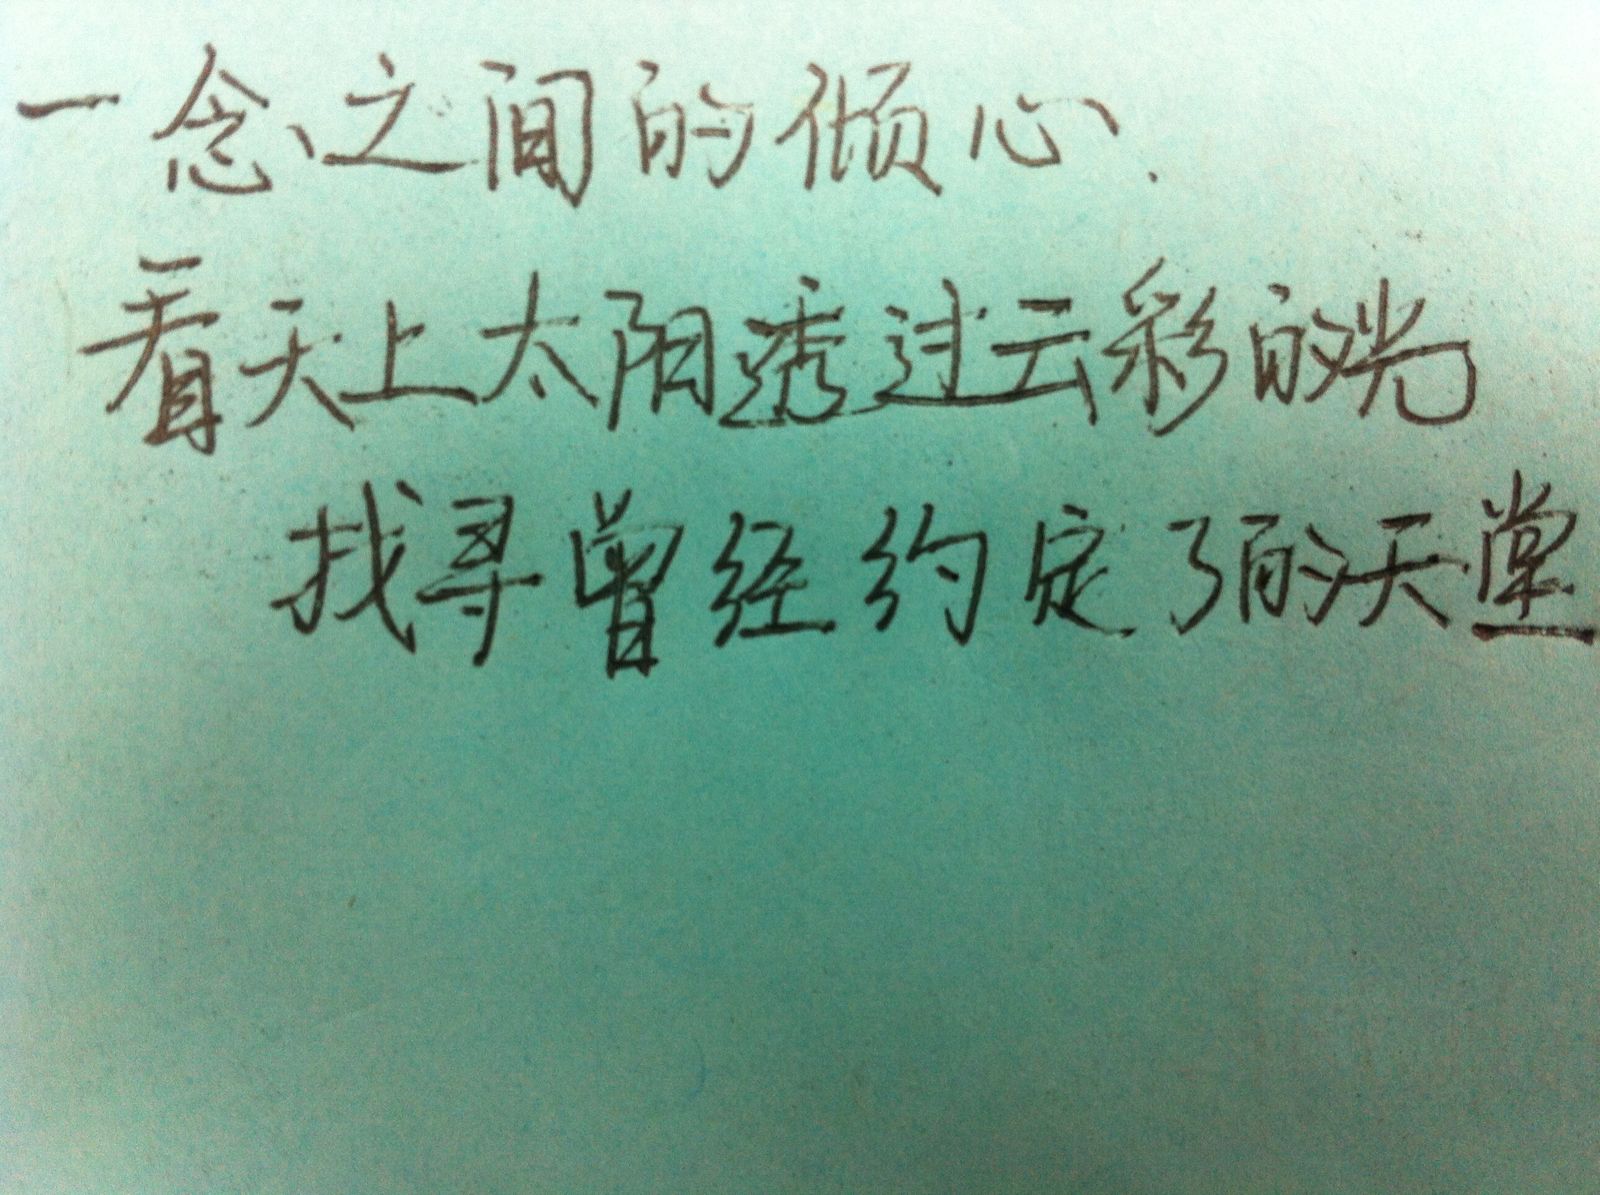 一念之间的倾心.
看天上太阳透过云彩的光
找寻曾经约定了的天堂